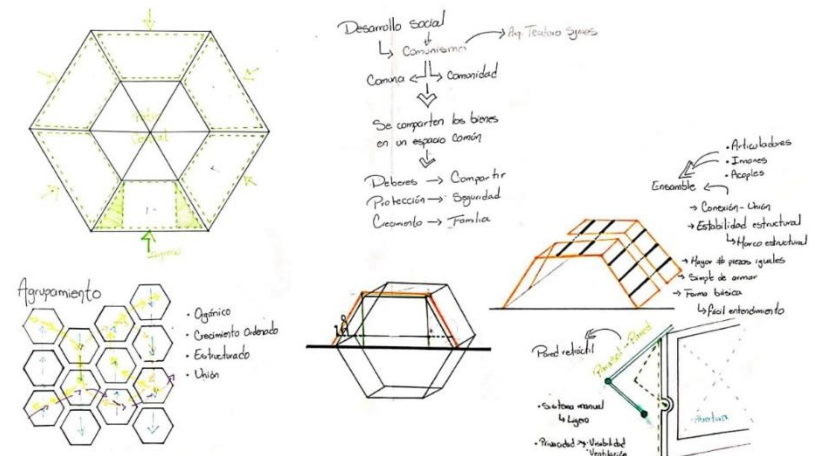 Ingreso
Desarrollo social
Comunismo
Comuna
Comunidad
Se comparten los bienes
en un espacio común
Deberes → Compartir
Protección → Seguridad
Crecimiento → Familia
Agrupamiento
• Orgánico
• Crecimiento Ordenado
• Estructurado
• Unión
• Articuladores
• Imanes
• Acoples
Ensamble
→ Conexión - Unión
→ Estabilidad estructural
↳ Marco estructural
→ Mayor # piezas iguales
→ Simple de armar
→ Forma básica
↳ fácil entendimiento
Pared retráctil
• Sistema manual
↳ Ligero
• Privacidad → Visibilidad
Ventilación
Abertura